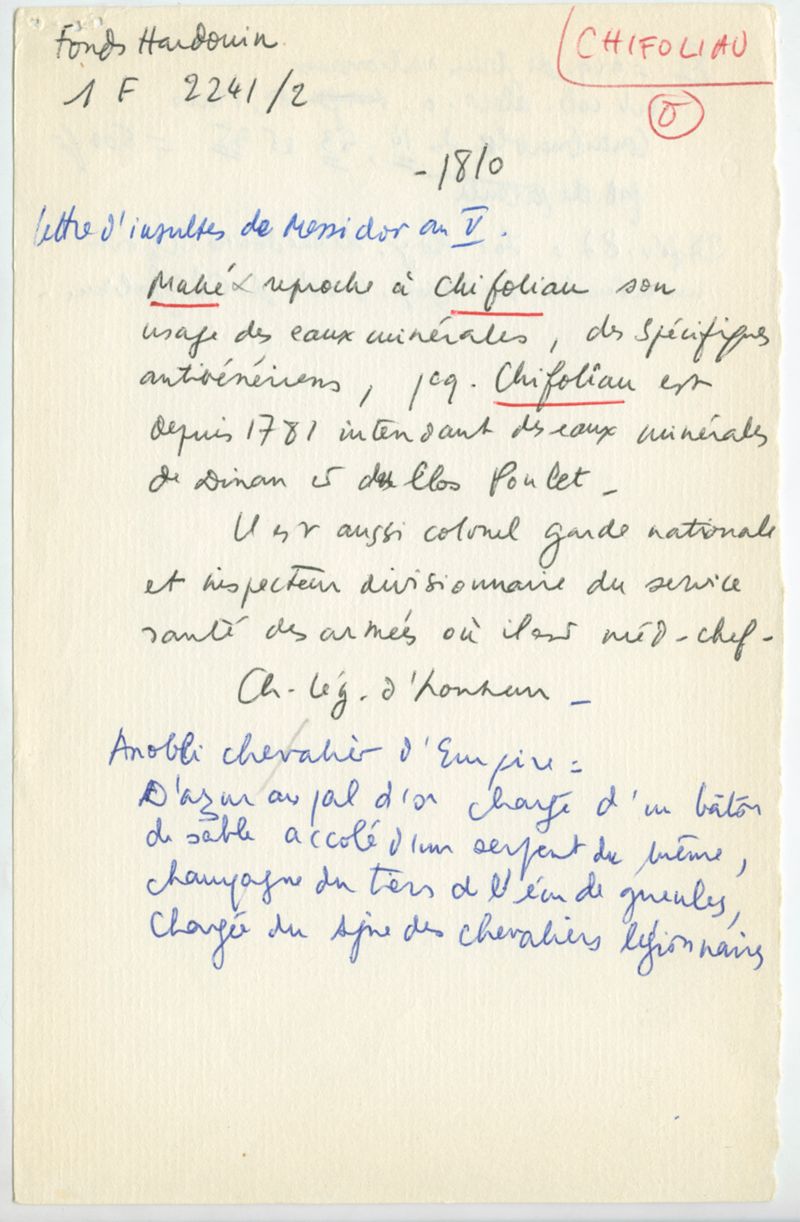 Fonds Hardouin
CHIFOLIAU
1 F 2241/2
5
- 1810
lettre d'insultes de Messidor an V.
Mahé reproche à Chifoliau son
usage des eaux minérales, des spécifiques
antivénériens, jcq. Chifoliau est
depuis 1781 intendant des eaux minérales
de Dinan et du Clos Poulet -
Il est aussi colonel garde nationale
et inspecteur divisionnaire du service
santé des armées où il est méd-chef-
Ch-lég. d'honneur -
Anobli chevalier d'Empire =
D'azur au pal d'or chargé d'un bâton
de sable accolé d'un serpent du même,
champagne du tiers de l'écu de gueules,
chargée du signe des chevaliers légionnaires